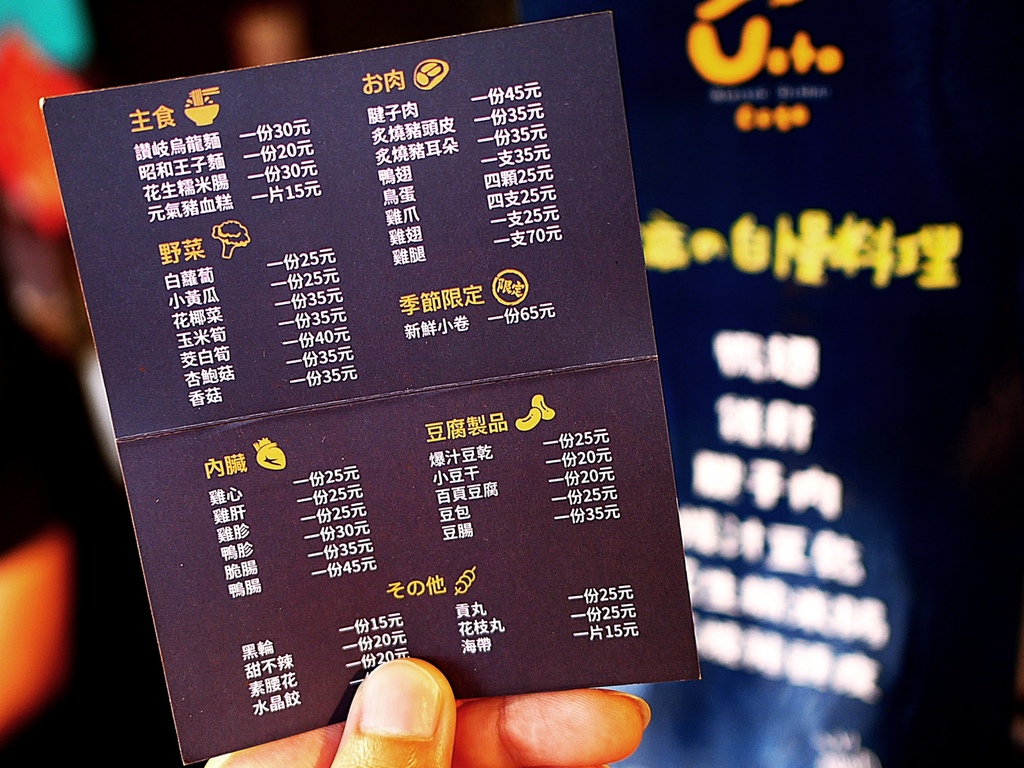 主食
讚岐烏龍麵 一份30元
昭和王子麵 一份20元
花生糯米腸 一份30元
元氣豬血糕 一片15元
野菜
白蘿蔔 一份25元
小黃瓜 一份25元
花椰菜 一份35元
玉米筍 一份35元
茭白筍 一份40元
杏鮑菇 一份35元
香菇 一份35元
お肉
腱子肉 一份45元
炙燒豬頭皮 一份35元
炙燒豬耳朵 一份35元
鴨翅 一支35元
鳥蛋 四顆25元
雞爪 四支25元
雞翅 一支25元
雞腿 一支70元
季節限定 限定
新鮮小卷 一份65元
內臟
雞心 一份25元
雞肝 一份25元
雞胗 一份25元
鴨胗 一份30元
脆腸 一份35元
鴨腸 一份45元
豆腐製品
爆汁豆乾 一份25元
小豆干 一份20元
百頁豆腐 一份20元
豆包 一份25元
豆腸 一份35元
その他
黑輪 一份15元
甜不辣 一份20元
素腰花 一份20元
水晶餃
貢丸 一份25元
花枝丸 一份25元
海帶 一片15元
の自慢料理
鴨翅
雞肝
腱子肉
爆汁豆乾